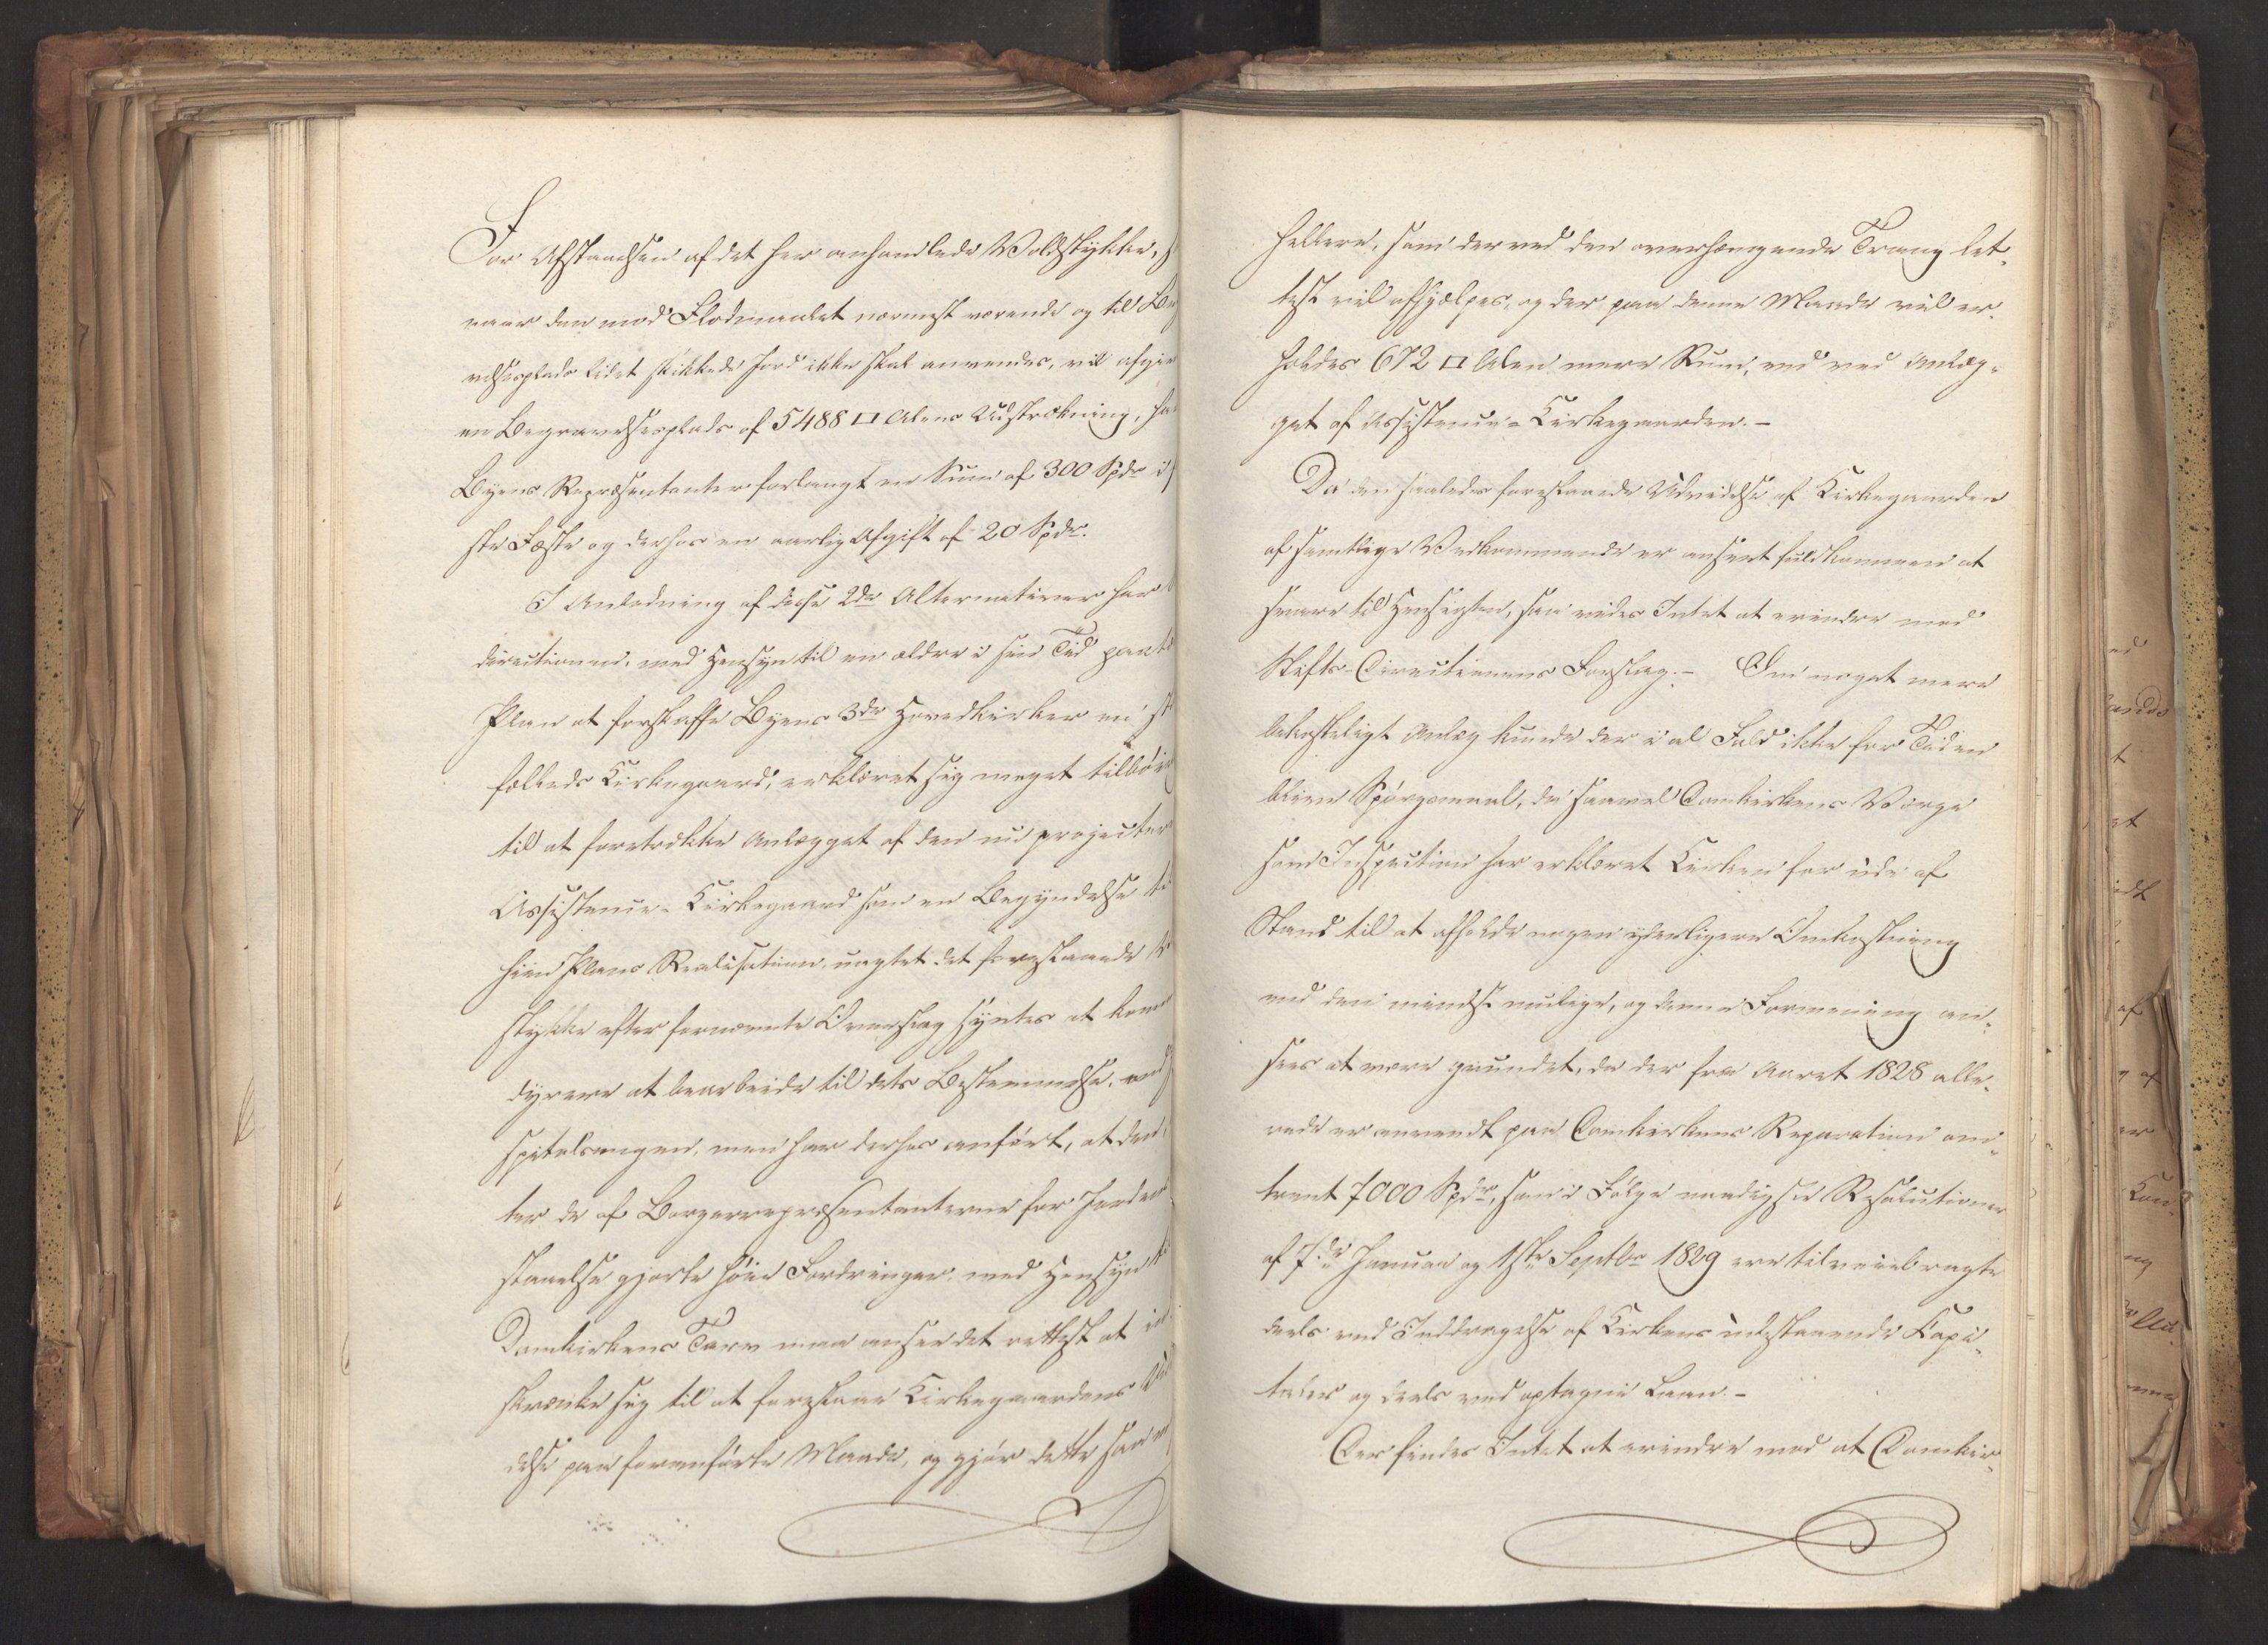 For Afstaaelsen af det her anhandlede Voldstykke, h
naar den mod Flodmaalet nærmest værende og til Beg
velsesplads lidet skikkede Jord ikke skal anvendes, vil afgive
en Begravelsesplads af 5488 □ Alens Udstrækning, ha
Byens Repræsentanter forlangt en Sum af 300 Spdr i
ste Fæste og derhos en aarlig Afgift af 20 Spdr.
I Anledning af disse 2de Alternativer har
directionen, med Hensyn til en ældre i sin Tid paatæ
Plan at forskaffe Byens 3de Hovedkirker en st
fælleds Kirkegaard, erklæret sig meget tilbøie
til at foretrække Anlægget af den nu projectere
Assistence-Kirkegaard som en Begyndelse ti
hiin Plans Realisation, uagtet det foreslaaede
stykke efter fornævnte Overslag syntes at kom
dyrere at bearbeide til dets Bestemmelse, end
spitalsengen, men har derhos anført, at den
ter de af Borgerrepræsentanterne for Jordens
staaelse gjorte høie Fordringer, med Hensyn ti
Domkirkens Tarv maa ansee det rettest at in
skrænke sig til at foreslaae Kirkegaardens Ud
delse paa foranførte Maade, og gjør dette saa m
hellere, som derved den overhængende Trang let-
test vil afhjælpes, og der paa denne Maade vil er-
holdes 672 □ Alen mere Rum, end ved Anlæg-
get af Assistence-Kirkegaarden.-
Da den saaledes foreslaaede Udvidelse af Kirkegaarden
af samtlige Vedkommende er anseet fuldkommen at
svare til Hensigten, saa vides Intet at erindre mod
Stifts-Directionens Forslag.- Om noget mere
bekosteligt Anlæg kunde der i al Fald ikke for Tiden
blive Spørgsmaal, da saavel Domkirkens Værge
som Inspection har erklæret Kirken for ude af
Stand til at afholde nogen yderligere Omkostning
end den mindst mulige, og denne Formening an-
sees at være grundet, da der fra Aaret 1828 alle-
rede er anvendt paa Domkirkens Reparation om-
trent 7000 Spdr, som i Følge naadigste Resolutioner
af 7de Januar og 1ste Septbr 1829 ere tilveiebragte
deels ved Inddragelse af Kirkens udestaaende Kapi-
taler og deels ved optagne Laan.-
Der findes Intet at erindre mod at Domkir-